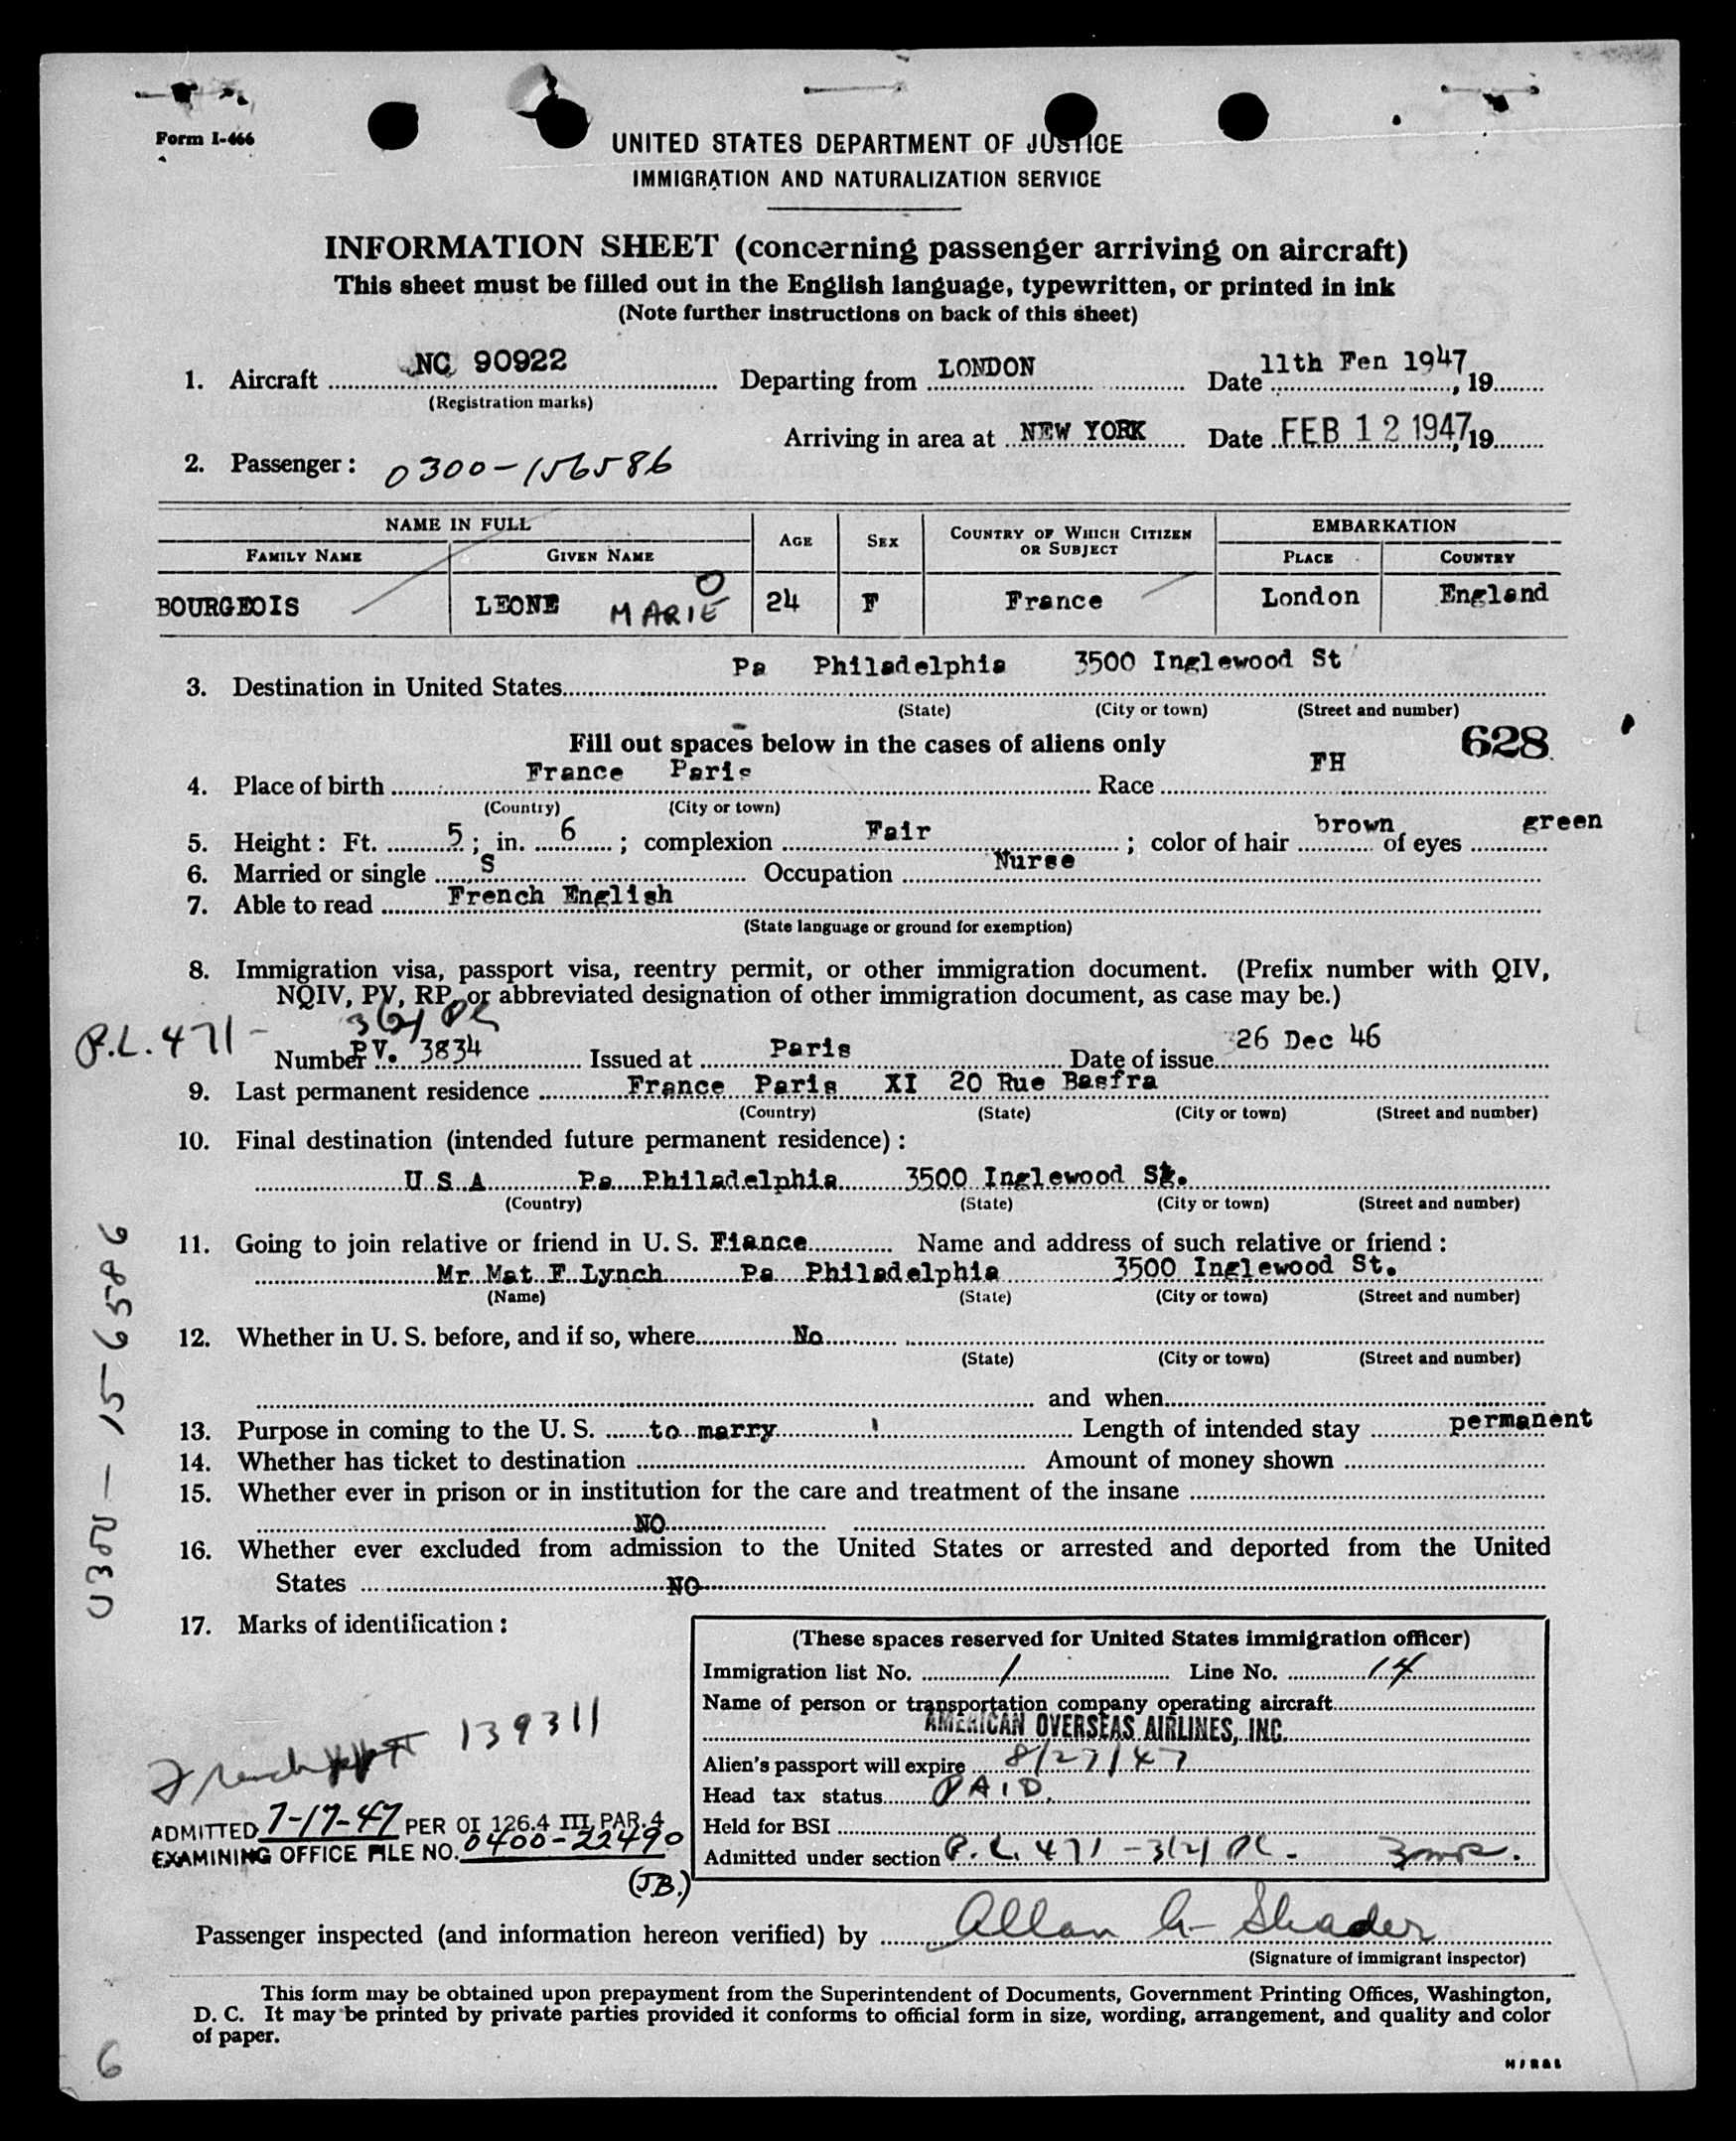 Form I-466
UNITED STATES DEPARTMENT OF JUSTICE
IMMIGRATION AND NATURALIZATION SERVICE
INFORMATION SHEET (concerning passenger arriving on aircraft)
This sheet must be filled out in the English language, typewritten, or printed in ink
(Note further instructions on back of this sheet)
1. Aircraft NC 90922 Departing from LONDON Date 11th Fen 1947, 19
(Registration marks)
Arriving in area at NEW YORK Date FEB 12 1947, 19
2. Passenger: 0300-156586
NAME IN FULL AGE SEX COUNTRY OF WHICH CITIZEN OR SUBJECT EMBARKATION
FAMILY NAME GIVEN NAME PLACE COUNTRY
BOURGEOIS LEONE MARIE O 24 F France London England
3. Destination in United States Pa Philadelphia 3500 Inglewood St
(State) (City or town) (Street and number)
Fill out spaces below in the cases of aliens only 628
4. Place of birth France Paris Race FH
(Country) (City or town)
5. Height: Ft. 5; in. 6; complexion Fair; color of hair brown of eyes green
6. Married or single S Occupation Nurse
7. Able to read French English
(State language or ground for exemption)
8. Immigration visa, passport visa, reentry permit, or other immigration document. (Prefix number with QIV,
NQIV, PV, RP, or abbreviated designation of other immigration document, as case may be.)
P.L. 471 - 3(2)
Number PV. 3834 Issued at Paris Date of issue 26 Dec 46
9. Last permanent residence France Paris XI 20 Rue Basfra
(Country) (State) (City or town) (Street and number)
10. Final destination (intended future permanent residence):
U S A Pa Philadelphia 3500 Inglewood St.
(Country) (State) (City or town) (Street and number)
11. Going to join relative or friend in U. S. Fiance Name and address of such relative or friend:
Mr Mat F Lynch Pa Philadelphia 3500 Inglewood St.
(Name) (State) (City or town) (Street and number)
12. Whether in U. S. before, and if so, where No
(State) (City or town) (Street and number)
and when
13. Purpose in coming to the U. S. to marry Length of intended stay permanent
14. Whether has ticket to destination Amount of money shown
15. Whether ever in prison or in institution for the care and treatment of the insane
NO
16. Whether ever excluded from admission to the United States or arrested and deported from the United
States NO
0300-156586
17. Marks of identification:
(These spaces reserved for United States immigration officer)
Immigration list No. 1 Line No. 14
Name of person or transportation company operating aircraft
AMERICAN OVERSEAS AIRLINES, INC.
Alien's passport will expire 8/27/47
Head tax status PAID.
Held for BSI
Admitted under section P.L. 471 - 3(2) - 3 mos.
French ppt 139311
ADMITTED 7-17-47 PER OI 126.4 III, PAR. 4
EXAMINING OFFICE FILE NO. 0400-22490
(JB.)
Passenger inspected (and information hereon verified) by Allan G Shader
(Signature of immigrant inspector)
This form may be obtained upon prepayment from the Superintendent of Documents, Government Printing Offices, Washington,
D. C. It may be printed by private parties provided it conforms to official form in size, wording, arrangement, and quality and color
of paper.
6